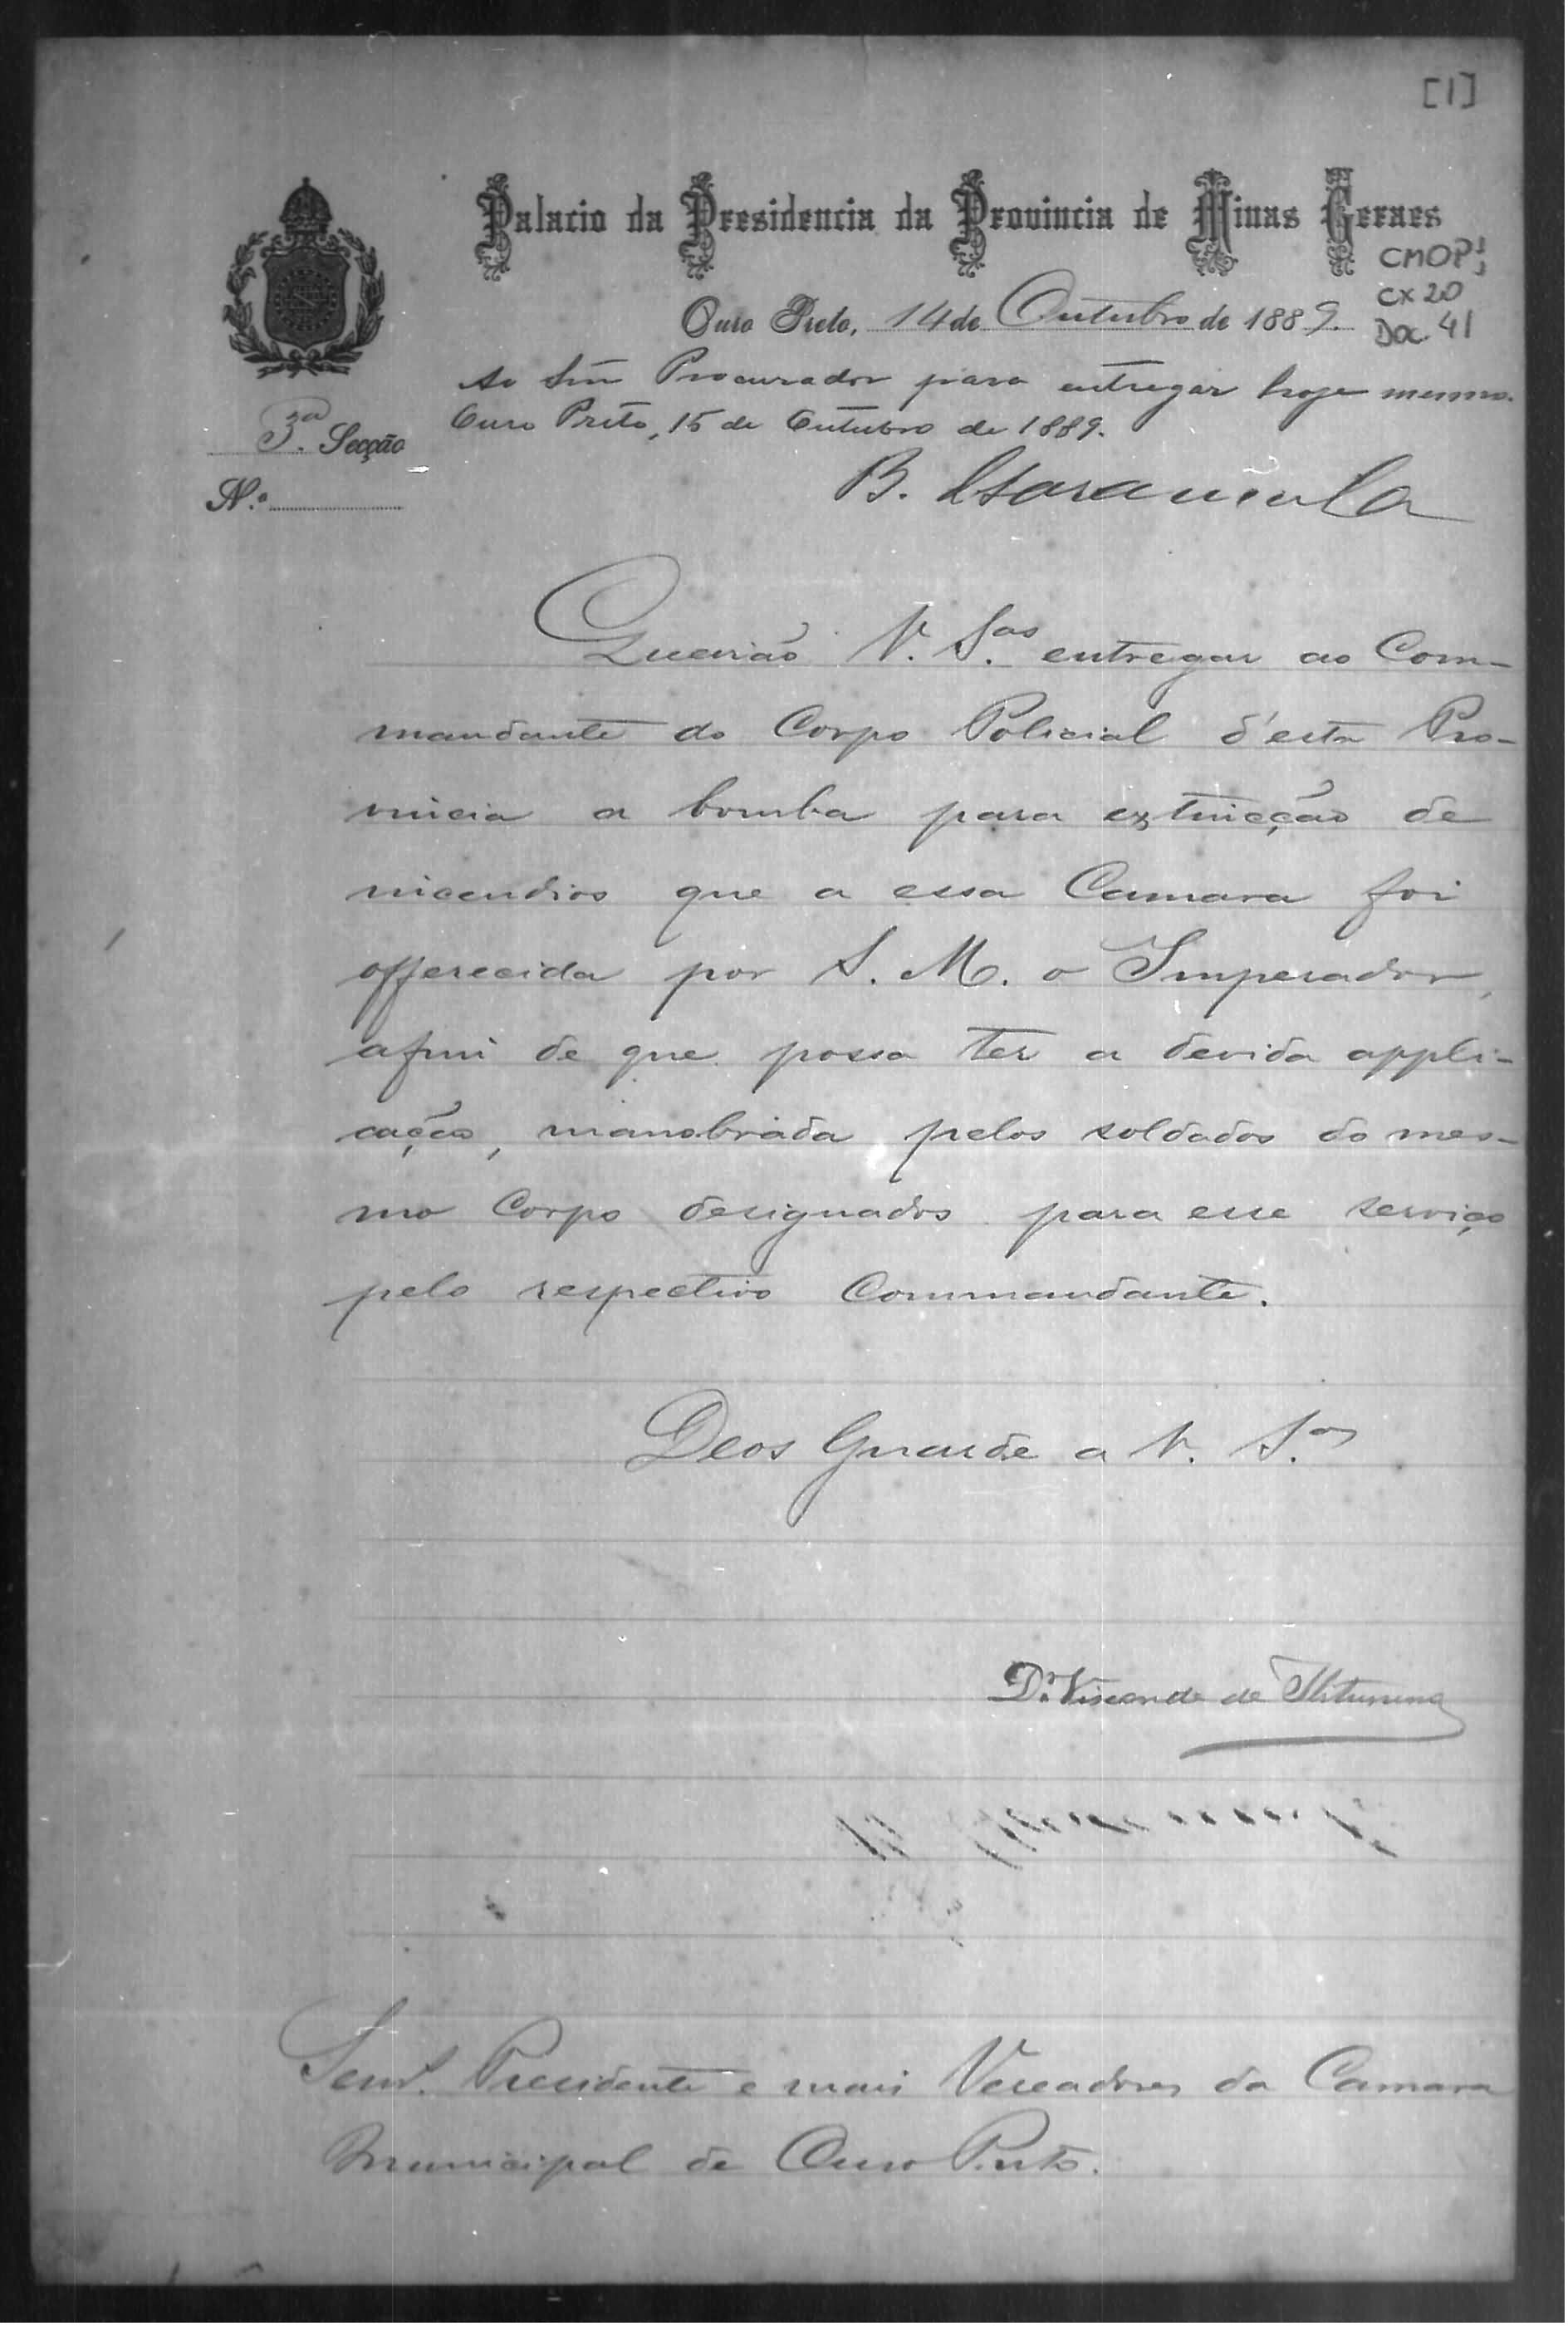 [1]
Palacio da Presidencia da Provincia de Minas Geraes
CMOP;
CX 20
Doc. 41
Ouro Preto, 14 de Outubro de 1889.
Ao Snr Procurador para entregar hoje mesmo.
Ouro Preto, 15 de Outubro de 1889.
3ª. Secção
N.º
B.
Queirão V. S.as entregar ao Com-
mandante do Corpo Policial d'esta Pro-
vincia a bomba para extincção de
incendios que a essa Camara foi
offerecida por S. M. o Imperador,
afim de que possa ter a devida appli-
cação, manobrada pelos soldados do mes-
mo Corpo designados para esse serviço
pelo respectivo Commandante.
Deos Guarde a V. S.as
Dr. Visconde de Ibituruna
Senr.s Presidente e mais Vereadores da Camara
Municipal de Ouro Preto.